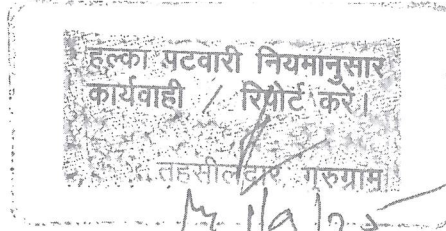 हल्का पटवारी नियमानुसार
कार्यवाही / रिपोर्ट करें।
तहसीलदार गुरुग्राम